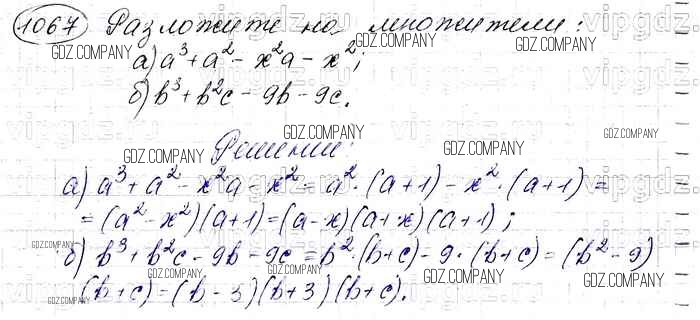 1067 Разложите на множители:
а) a³ + a² - x²a - x²;
б) b³ + b²c - 9b - 9c.
Решение:
а) a³ + a² - x²a - x² = a² · (a+1) - x² · (a+1) =
= (a² - x²)(a+1) = (a-x)(a+x)(a+1);
б) b³ + b²c - 9b - 9c = b² · (b+c) - 9 · (b+c) = (b² - 9)
(b+c) = (b-3)(b+3)(b+c).
GDZ.COMPANY
vipgdz